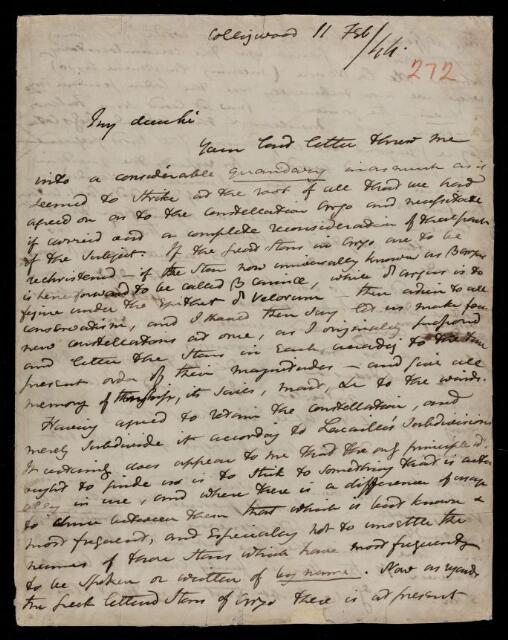 Collingwood 11 Feb/44.
272
My dear Sir
Your last letter threw me
into a considerable quandary inasmuch as it
seemed to strike at the root of all that we had
agreed on as to the constellation Argo and necessitate
if carried out a complete reconsideration of that part
of the subject. If the great Stars in Argo are to be
rechristened – if the Star now universally known as β Argus
is henceforward to be called β Carinæ, while δ Argus is to
figure under the epithet δ Velorum – then adieu to all
conservatism, and I should then say let us make four
new constellations at once, as I originally proposed
and letter the Stars in each according to the
present order of their magnitudes – and give all
memory of the ship, its sails, mast, &c to the winds.
Having agreed to retain the constellation, and
merely subdivide it according to Lacaille's Subdivisions
It certainly does appear to me that the only principle
ought to guide us is to stick to something that is actu-
ally in use, and where there is a difference of usage
to chuse between them that which is best known &
most frequent, and Especially not to unsettle the
names of those Stars which have most frequently
to be spoken or written of by name. Now as regards
the Greek lettered Stars of Argo there is at present